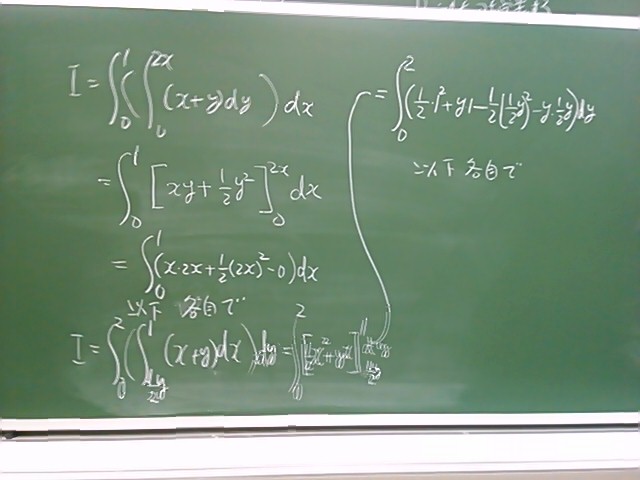 I = ∫₀¹ ( ∫₀²ˣ (x+y)dy ) dx
= ∫₀¹ [ xy + ½y² ]₀²ˣ dx
= ∫₀¹ (x·2x + ½(2x)² - 0) dx
以下 各自で
I = ∫₀² ( ∫_{½y}¹ (x+y)dx ) dy = ∫₀² [ ½x² + yx ]
= ∫₀² (½·1² + y·1 - ½(½y)² - y·½y)dy
以下 各自で